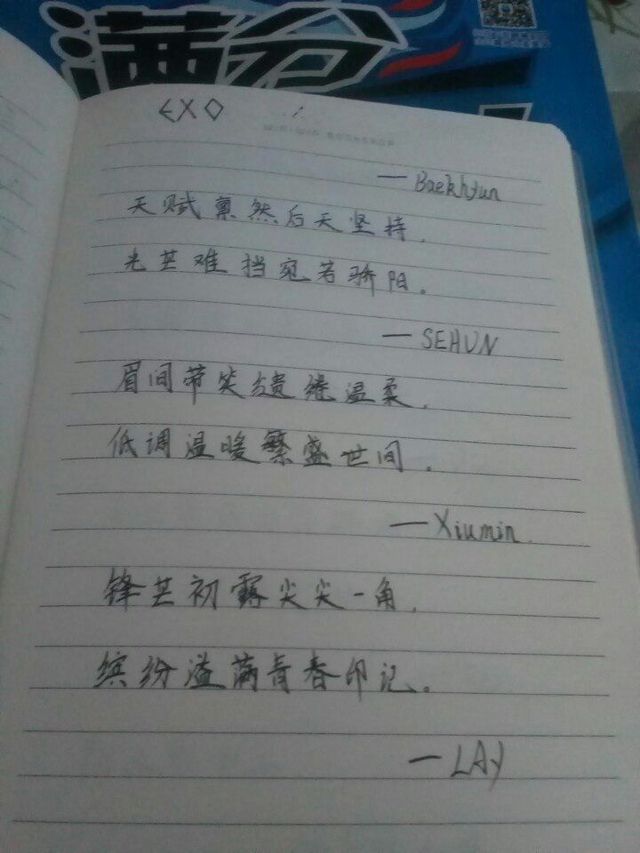 满分
EXO
—Baekhyun
天赋禀然后天坚持,
光芒难挡宛若骄阳。
—SEHUN
眉间带笑缱绻温柔,
低调温暖繁盛世间.
—Xiumin.
锋芒初露尖尖一角,
缤纷溢满青春印记。
—LAY